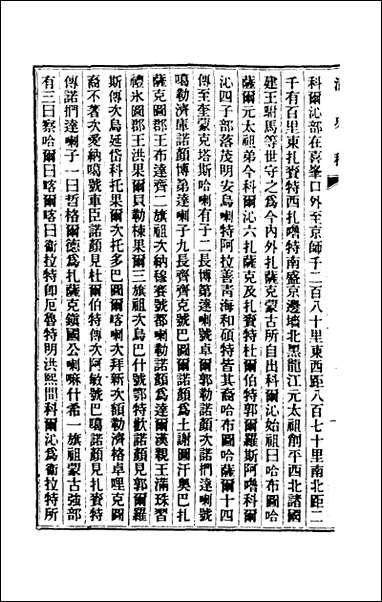 清史稿
科爾沁部在喜峯口外至京師千二百八十里東西距八百七十里南北距二
千有百里東扎賚特西扎嚕特南盛京邊墻北黑龍江元太祖創平西北諸國
建王駙馬等世守之爲今內外扎薩克蒙古所自出科爾沁始祖曰哈布圖哈
薩爾元太祖弟今科爾沁六扎薩克及扎賚特杜爾伯特郭爾羅斯阿嚕科爾
沁四子部落茂明安烏喇特阿拉善青海和碩特皆其裔哈布圖哈薩爾十四
傳至奎蒙克塔斯哈喇有子二長博第達喇號卓爾郭勒諾顏次諾捫達喇號
噶勒濟庫諾顏博第達喇子九長齊齊克號巴圖爾諾顏爲土謝圖汗奧巴扎
薩克圖郡王布達齊二旗祖次納穆賽號都喇勒諾顏爲達爾漢親王滿珠習
禮冰圖郡王洪果爾貝勒棟果爾三旗祖次烏巴什號鄂特歡諾顏見郭爾羅
斯傳次烏延岱科托果爾次托多巴圖爾喀喇次拜新次額勒濟格卓哩克圖
裔不著次愛納噶號車臣諾顏見杜爾伯特傳次阿敏號巴噶諾顏見扎賚特
傳諾捫達喇子一曰哲格爾德爲扎薩克鎮國公喇嘛什希一旗祖蒙古強部
有三曰察哈爾曰喀爾喀曰衞拉特卽厄魯特明洪熙間科爾沁爲衞拉特所